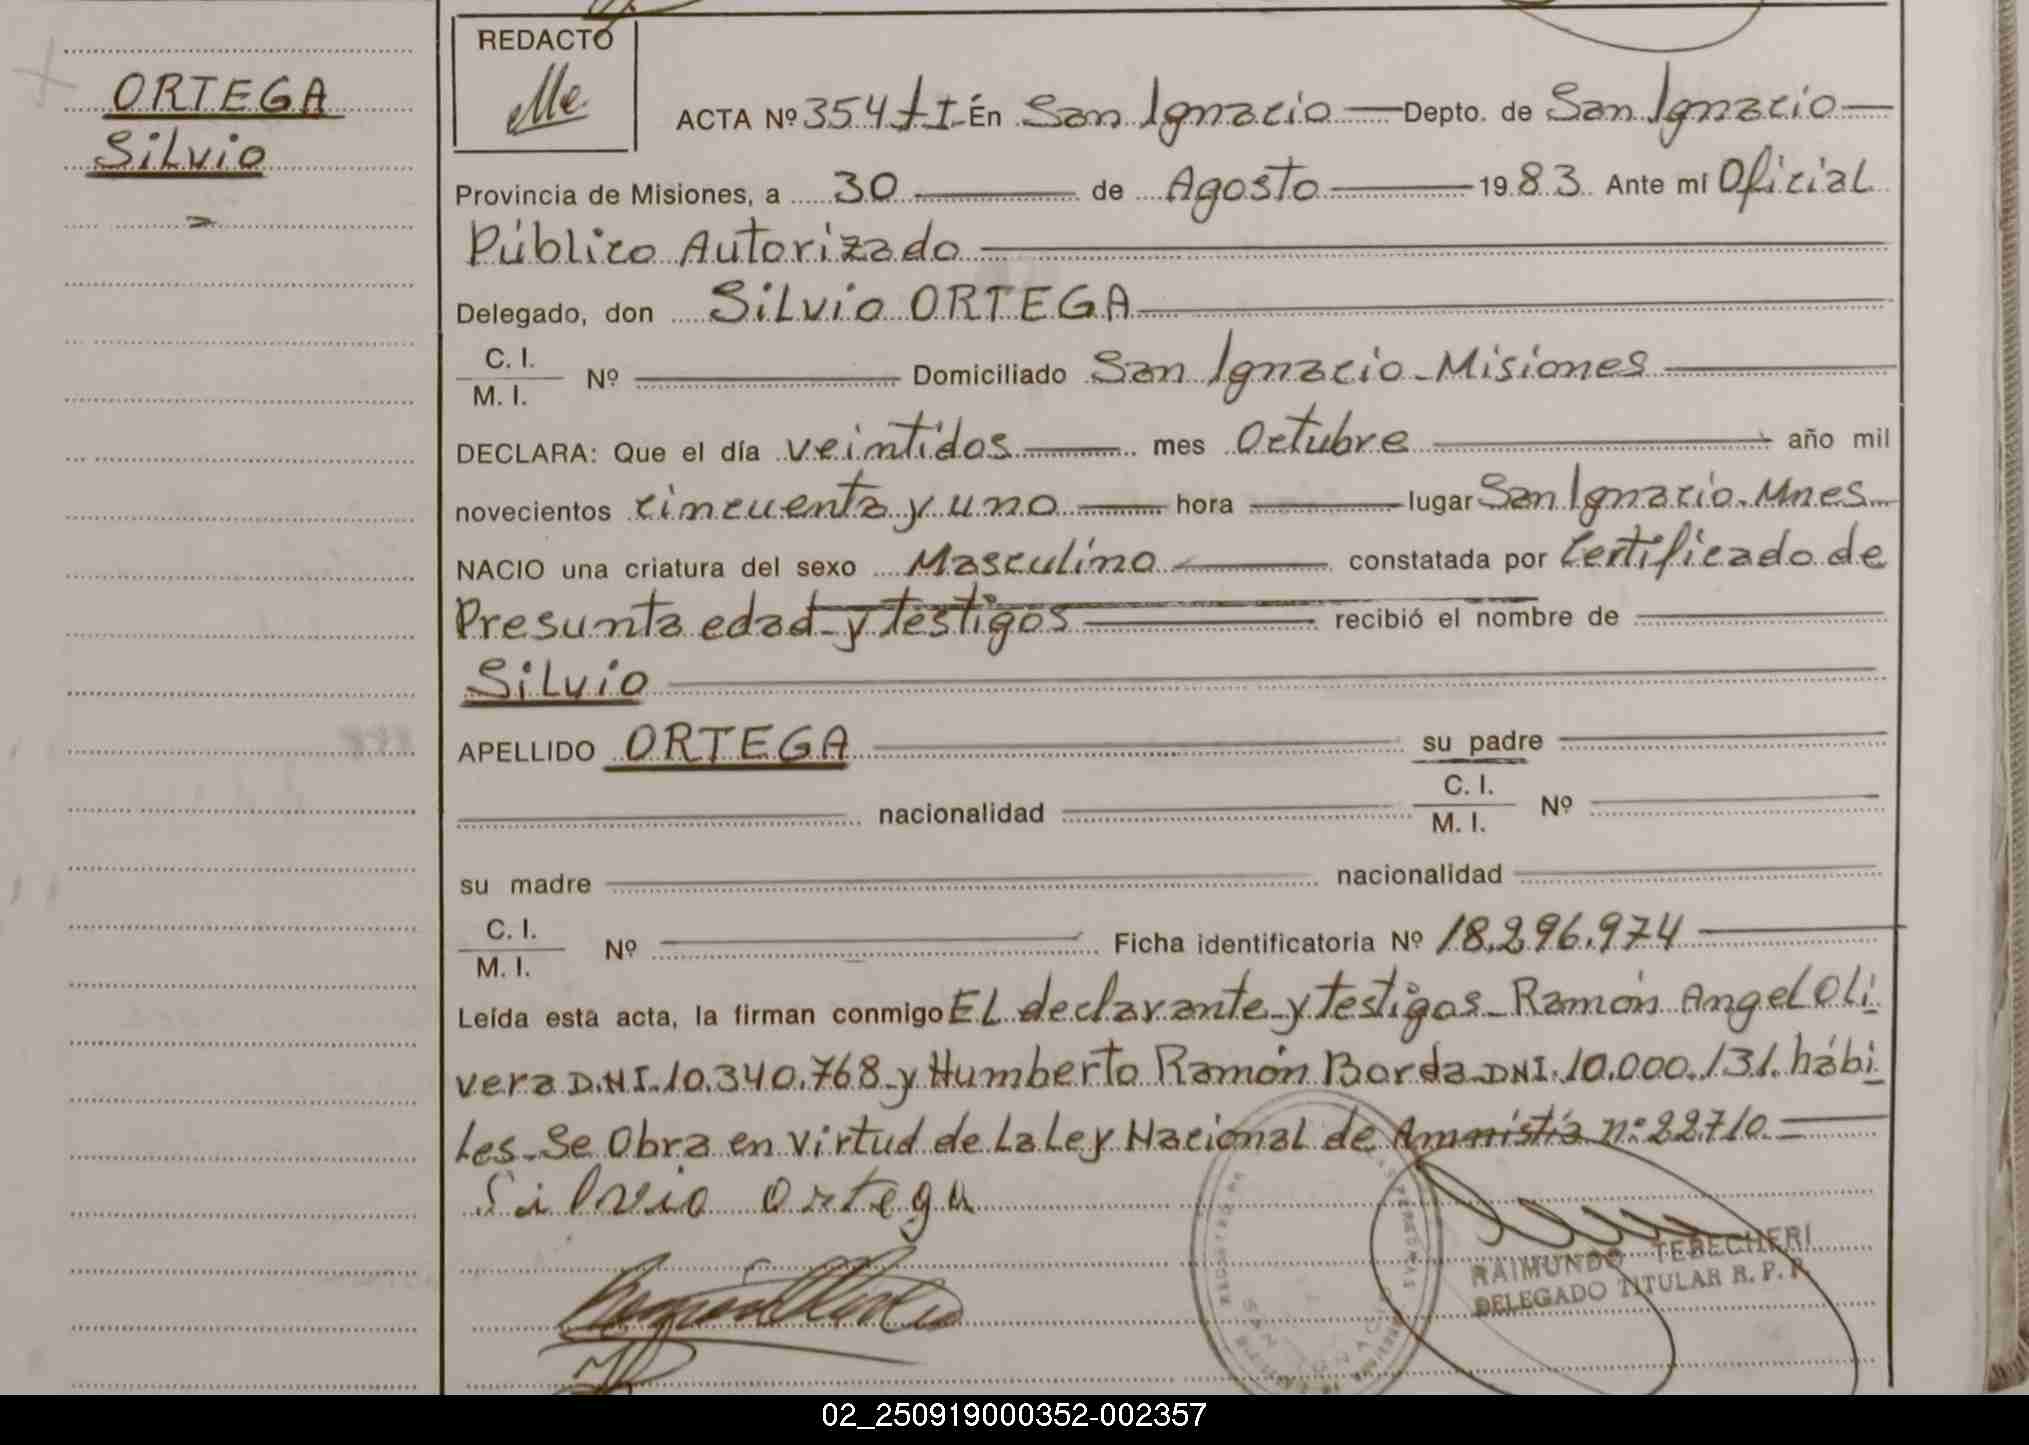 ORTEGA
Silvio
REDACTO
ACTA Nº 354 tI En San Ignacio Depto. de San Ignacio
Provincia de Misiones, a 30 de Agosto 1983. Ante mi Oficial
Público Autorizado
Delegado, don Silvio ORTEGA
C. I.
M. I. Nº Domiciliado San Ignacio - Misiones
DECLARA: Que el día veintidos mes Octubre año mil
novecientos cincuenta y uno hora lugar San Ignacio. Mnes.
NACIO una criatura del sexo Masculino constatada por Certificado de
Presunta edad - y testigos recibió el nombre de
Silvio
APELLIDO ORTEGA su padre
nacionalidad C. I.
M. I. Nº
su madre nacionalidad
C. I.
M. I. Nº Ficha identificatoria Nº 18.296.974
Leída esta acta, la firman conmigo El declarante y testigos - Ramón Angel Oli
vera D.N.I. 10.340.768 - y Humberto Ramón Borda DNI. 10.000.131. hábi
les. Se Obra en virtud de la Ley Nacional de Amnistía nº 22710.
Silvio Ortega
RAIMUNDO TEBECHERI
DELEGADO TITULAR R. P. P.
02_250919000352-002357